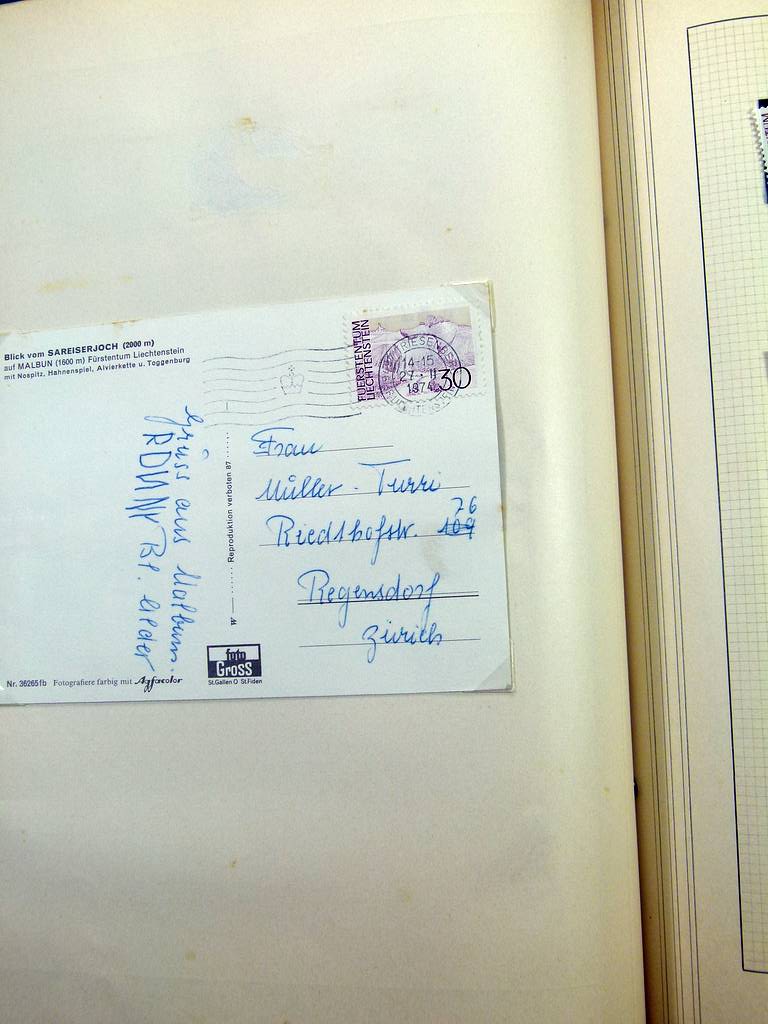 Blick vom SAREISERJOCH (2000 m)
auf MALBUN (1600 m) Fürstentum Liechtenstein
mit Nospitz, Hahnenspiel, Alvierkette u. Toggenburg
FUERSTENTUM
LIECHTENSTEIN
30
TRIESENBERG
14-15
27.
1974
LIECHTENSTEIN
Grüss aus Malbun.
Reproduktion verboten 87
Frau
Müller - Turri
76
Riedthofstr. 109
Regensdorf
Zürich
foto
GROSS
St.Gallen O St.Fiden
Nr. 36265fb Fotografiere farbig mit Agfacolor
TUM